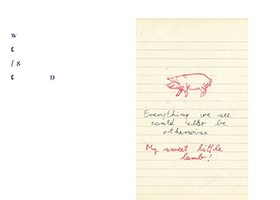 W
C
/ S
C D
Everything we see
could also be
otherwise
My sweet little
lamb!